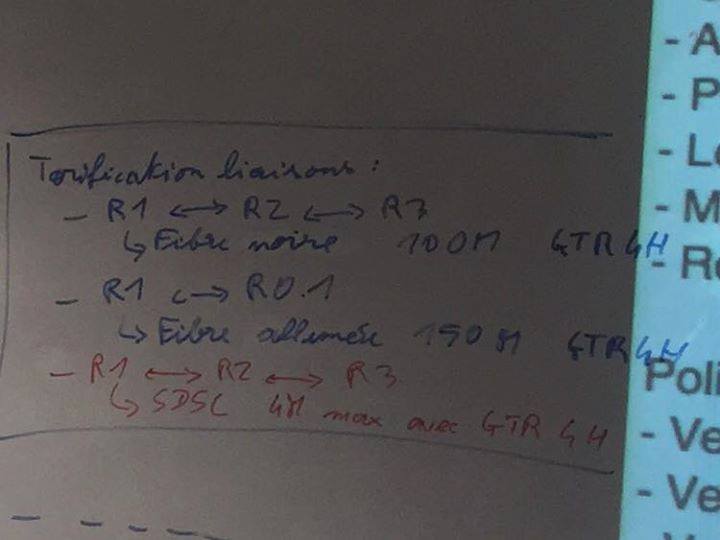 Tarification liaisons :
- R1 <-> R2 <-> R3
↳ Fibre noire 100M GTR 4H
- R1 <-> R0.1
↳ Fibre allumée 150M GTR 4H
- R1 <-> R2 <-> R3
↳ SDSL 4M max avec GTR 4H
- A
- P
- Le
- M
- Re
Poli
- Ve
- Ve